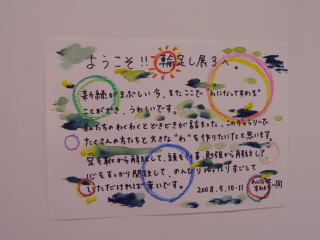 ようこそ!! 輪足し展3へ。
新緑がまぶしい今、またここで"わになってすわる"
ことができ、うれしいです。
私たちのわくわくとどきどきが詰まった、このギャラリーで
たくさんの方たちと大きな"わ"を作りたいなと思います。
足を靴から開放して、頭を仕事、勉強から開放して、
心をすっかり開放して、のんびりゆったりすごして
いただければ幸いです。 2008.5.10-11
わになってすわる一同